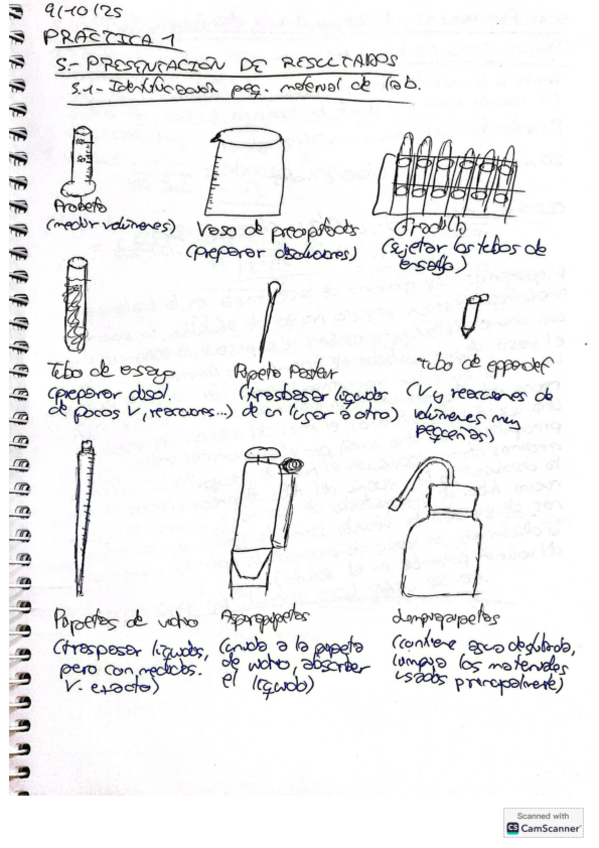 9/10/25
PRÁCTICA 1
5.- PRESENTACIÓN DE RESULTADOS
5.1.- Identificación peq. material de lab.
Probeta
(medir volúmenes)
Vaso de precipitados
(preparar disoluciones)
Gradilla
(sujetar los tubos de
ensayo)
Tubo de ensayo
(preparar disol.
de pocos V, reacciones...)
Pipeta Pasteur
(trasbasar líquidos
de un lugar a otro)
tubo de eppendorf
(V y reacciones de
volúmenes muy
pequeños)
Pipetas de vidrio
(traspasar líquidos,
pero con medidas.
V. exacto)
Aspirapipetas
(unido a la pipeta
de vidrio, absorber
el líquido)
Limpiapipetas
(contiene agua destilada,
limpia los materiales
usados principalmente)
Scanned with
CS CamScanner